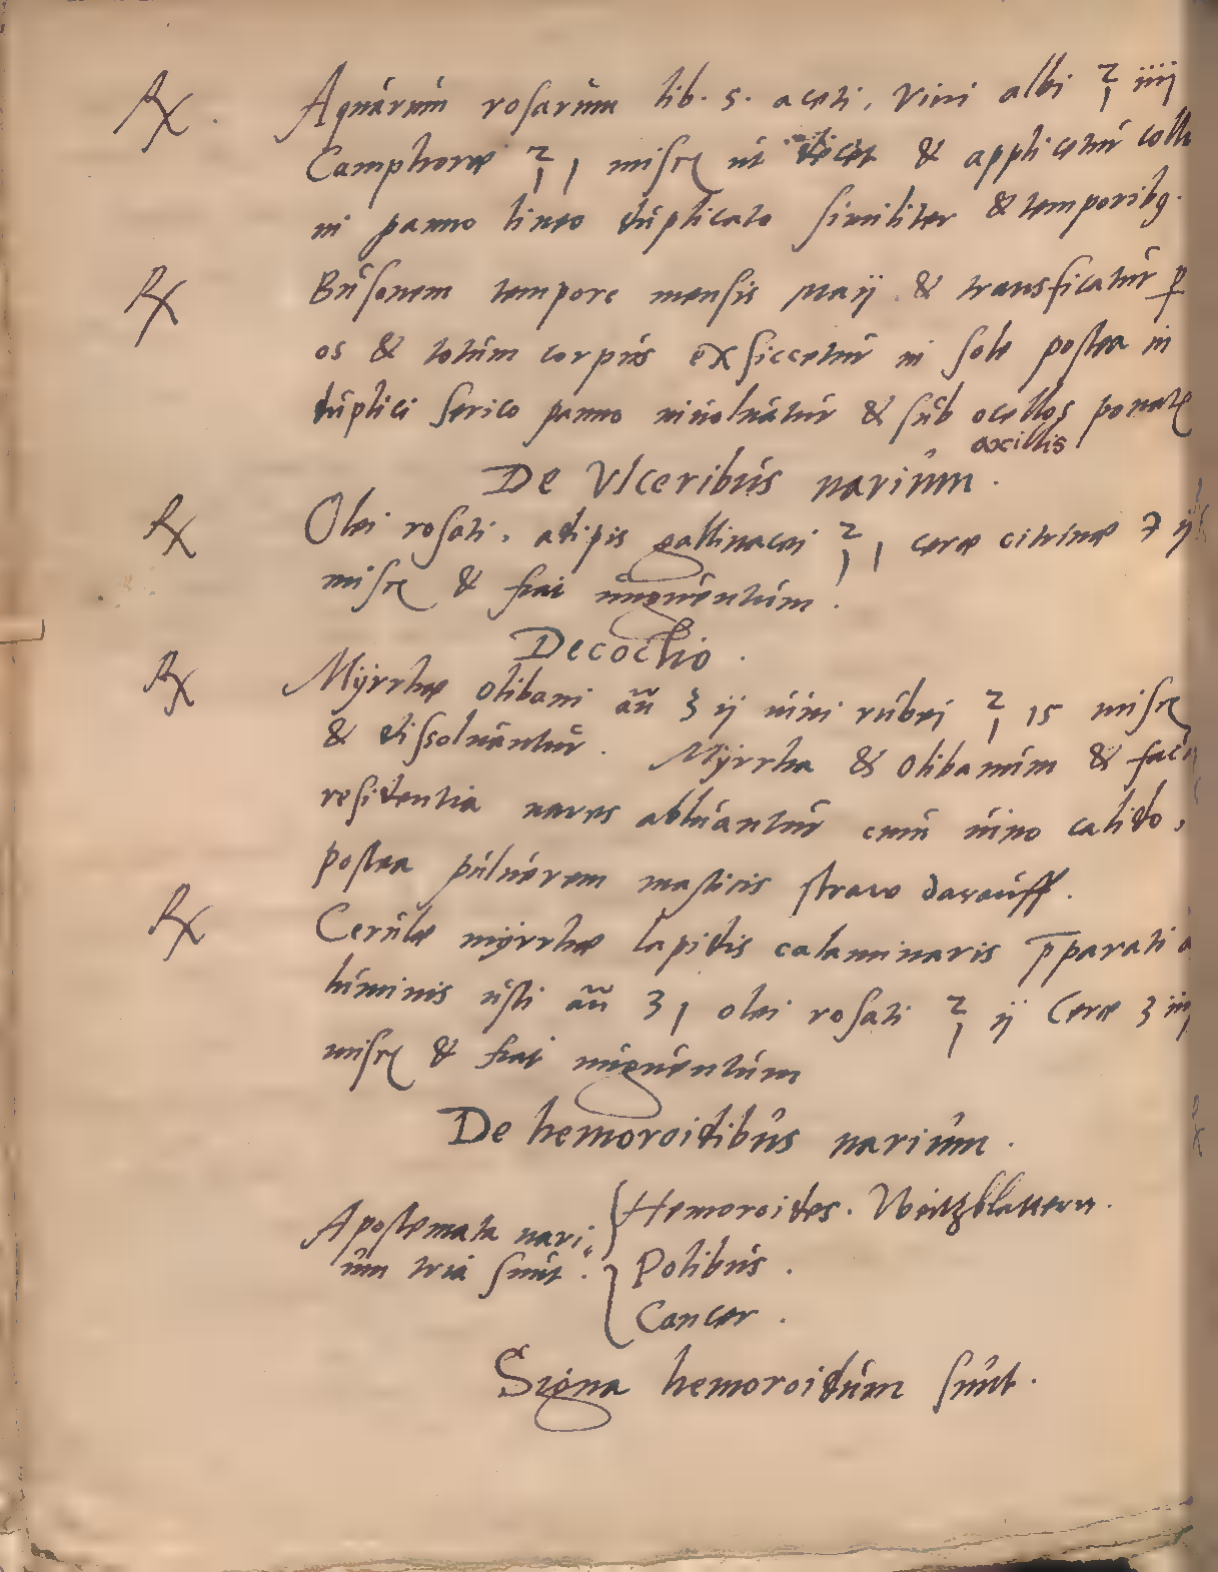 ℞. Aquarum rosarum lib. s. aceti, vini albi ℥ iiij
Camphoræ ℥ 1 misce ut decet & applicetur collo
in panno lineo duplicato similiter & temporibꝰ.
℞ Bufonem tempore mensis Maij & transficatur ꝑ
os & totum corpus exsiccetur in sole postea in
duplici serico panno involuatur & sub ocellos ponatr
axillis
De Ulceribus narium.
℞ Olei rosati, adipis gallinacei ℥ 1, ceræ citrinæ ʒ ij
misce & fiat unguentum.
Decoctio.
℞ Myrrhæ olibani añ ʒ ij vini rubri ℥ 15 misce
& dissolvantur. Myrrha & olibanum &
residentia nares abluantur cum vino calido,
postea pulverem masticis strawe darauff.
℞ Cerusæ myrrhæ lapidis calaminaris p̄parati a
luminis usti añ ʒ 1 olei rosati ℥ ij Ceræ ʒ iij
misce & fiat unguentum
De hemoroidibus narium.
Apostemata nari= Hemoroides.
um tria sunt. Polibus.
Cancer.
Signa hemoroidum sunt.